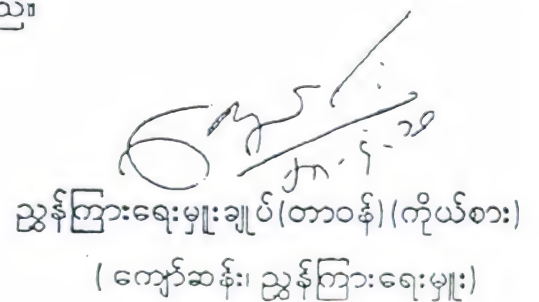 သည်။
ညွှန်ကြားရေးမှူးချုပ်(တာဝန်)(ကိုယ်စား)
( ကျော်ဆန်း၊ ညွှန်ကြားရေးမှူး)